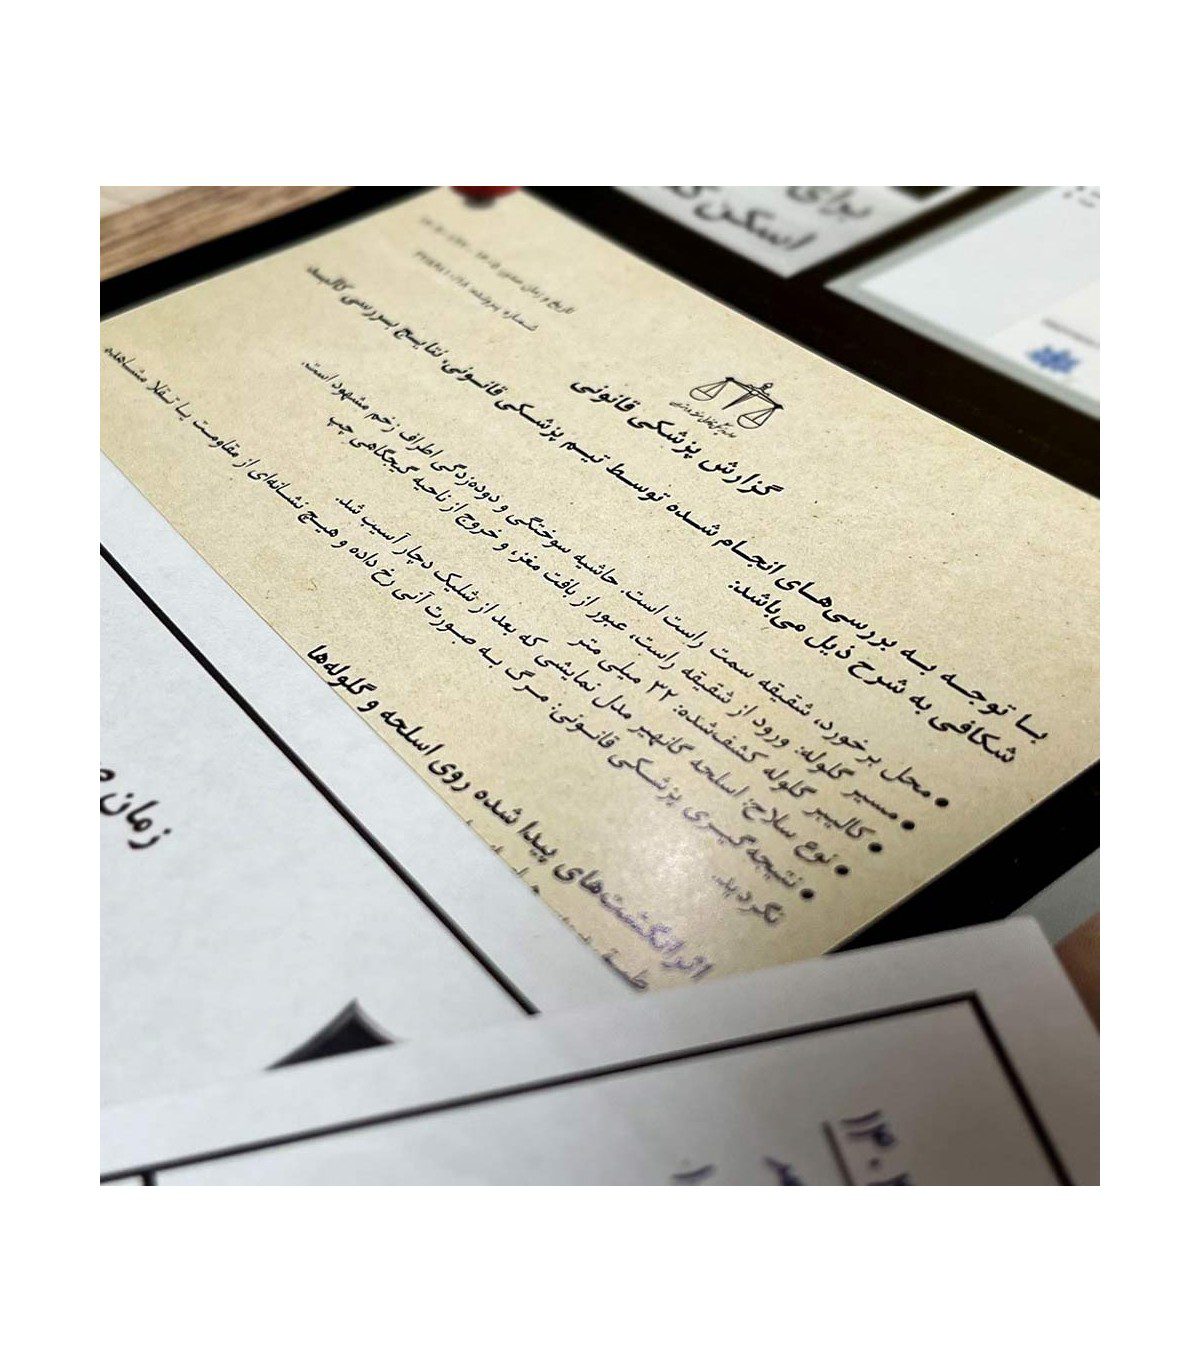 برای
اسکن
تاریخ و زمان
شماره پرونده
گزارش پزشکی قانونی
با توجه به بررسی‌های انجام شده توسط تیم پزشکی قانونی، نتایج بررسی کالبد
شکافی به شرح ذیل می‌باشد:
• محل برخورد، شقیقه سمت راست است. حاشیه سوختگی و دوده‌زدگی اطراف زخم مشهود است.
• مسیر گلوله: ورود از شقیقه راست، عبور از بافت مغز، و خروج از ناحیه گیجگاهی چپ
• کالیبر گلوله کشف‌شده: ۲۲ میلی متر
• نوع سلاح: اسلحه کانهیر مدل نمایشی که بعد از شلیک دچار آسیب شد.
• نتیجه‌گیری پزشکی قانونی: مرگ به صورت آنی رخ داده و هیچ نشانه‌ای از مقاومت یا تقلا مشاهده
نگردید.
اثر انگشت‌های پیدا شده روی اسلحه و گلوله‌ها
زمان